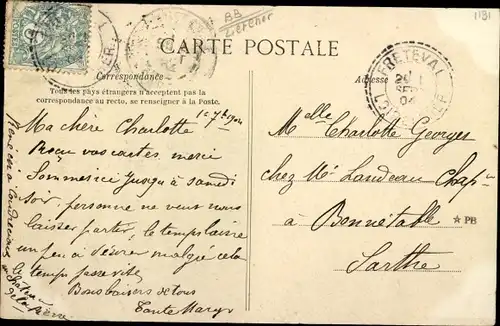 1131
BB
CARTE POSTALE
Correspondance
Tous les pays étrangers n'acceptent pas la
correspondance au recto, se renseigner à la Poste.
Adresse
FRETEVAL
04
1r 7bre 1904
Ma chère Charlotte
Reçu vos cartes merci
Sommes ici jusqu'à samedi
soir, personne ne veut nous
laisser partir, le temps laisse
un peu à désirer malgré cela
temps passe vite
Bons baisers de tous
Tante Mary
Melle Charlotte Georges
chez Mr Landeau Chap
à Bonnétable
★ PB
Sarthe